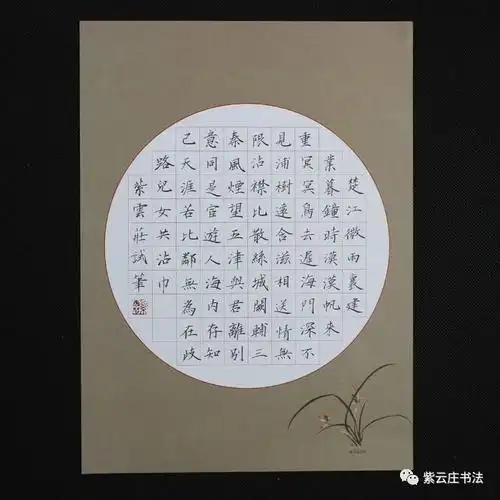 楚江微雨裏建
業暮鐘時漠漠帆來
重冥冥鳥去遲海門深不
見浦樹遠含滋相送情無
限沾襟比散絲城闕輔三
秦風煙望五津與君離別
意同是宦遊人海内存知
己天涯若比鄰無為在歧
路兒女共沾巾
紫雲莊試筆
紫云庄书法